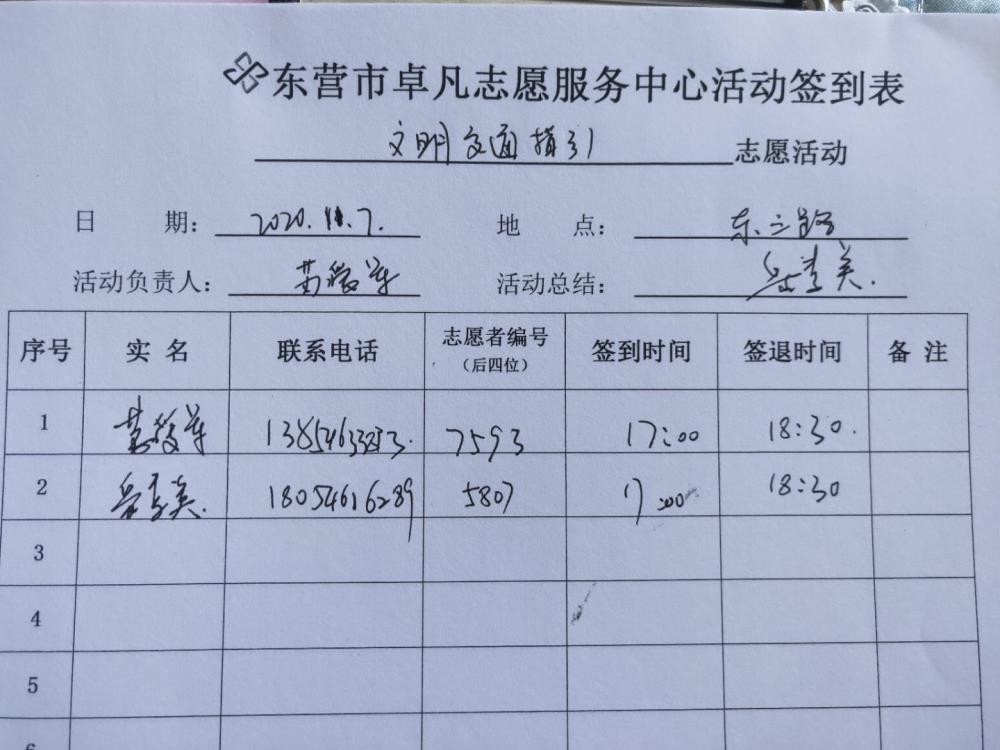 东营市卓凡志愿服务中心活动签到表
文明交通指引 志愿活动
日 期： 2020.11.7. 地 点： 东三路
活动负责人： 活动总结：
序号 实名 联系电话 志愿者编号（后四位） 签到时间 签退时间 备注
1 7593 17:00 18:30.
2 18054616289 5807 17:00 18:30
3
4
5
6